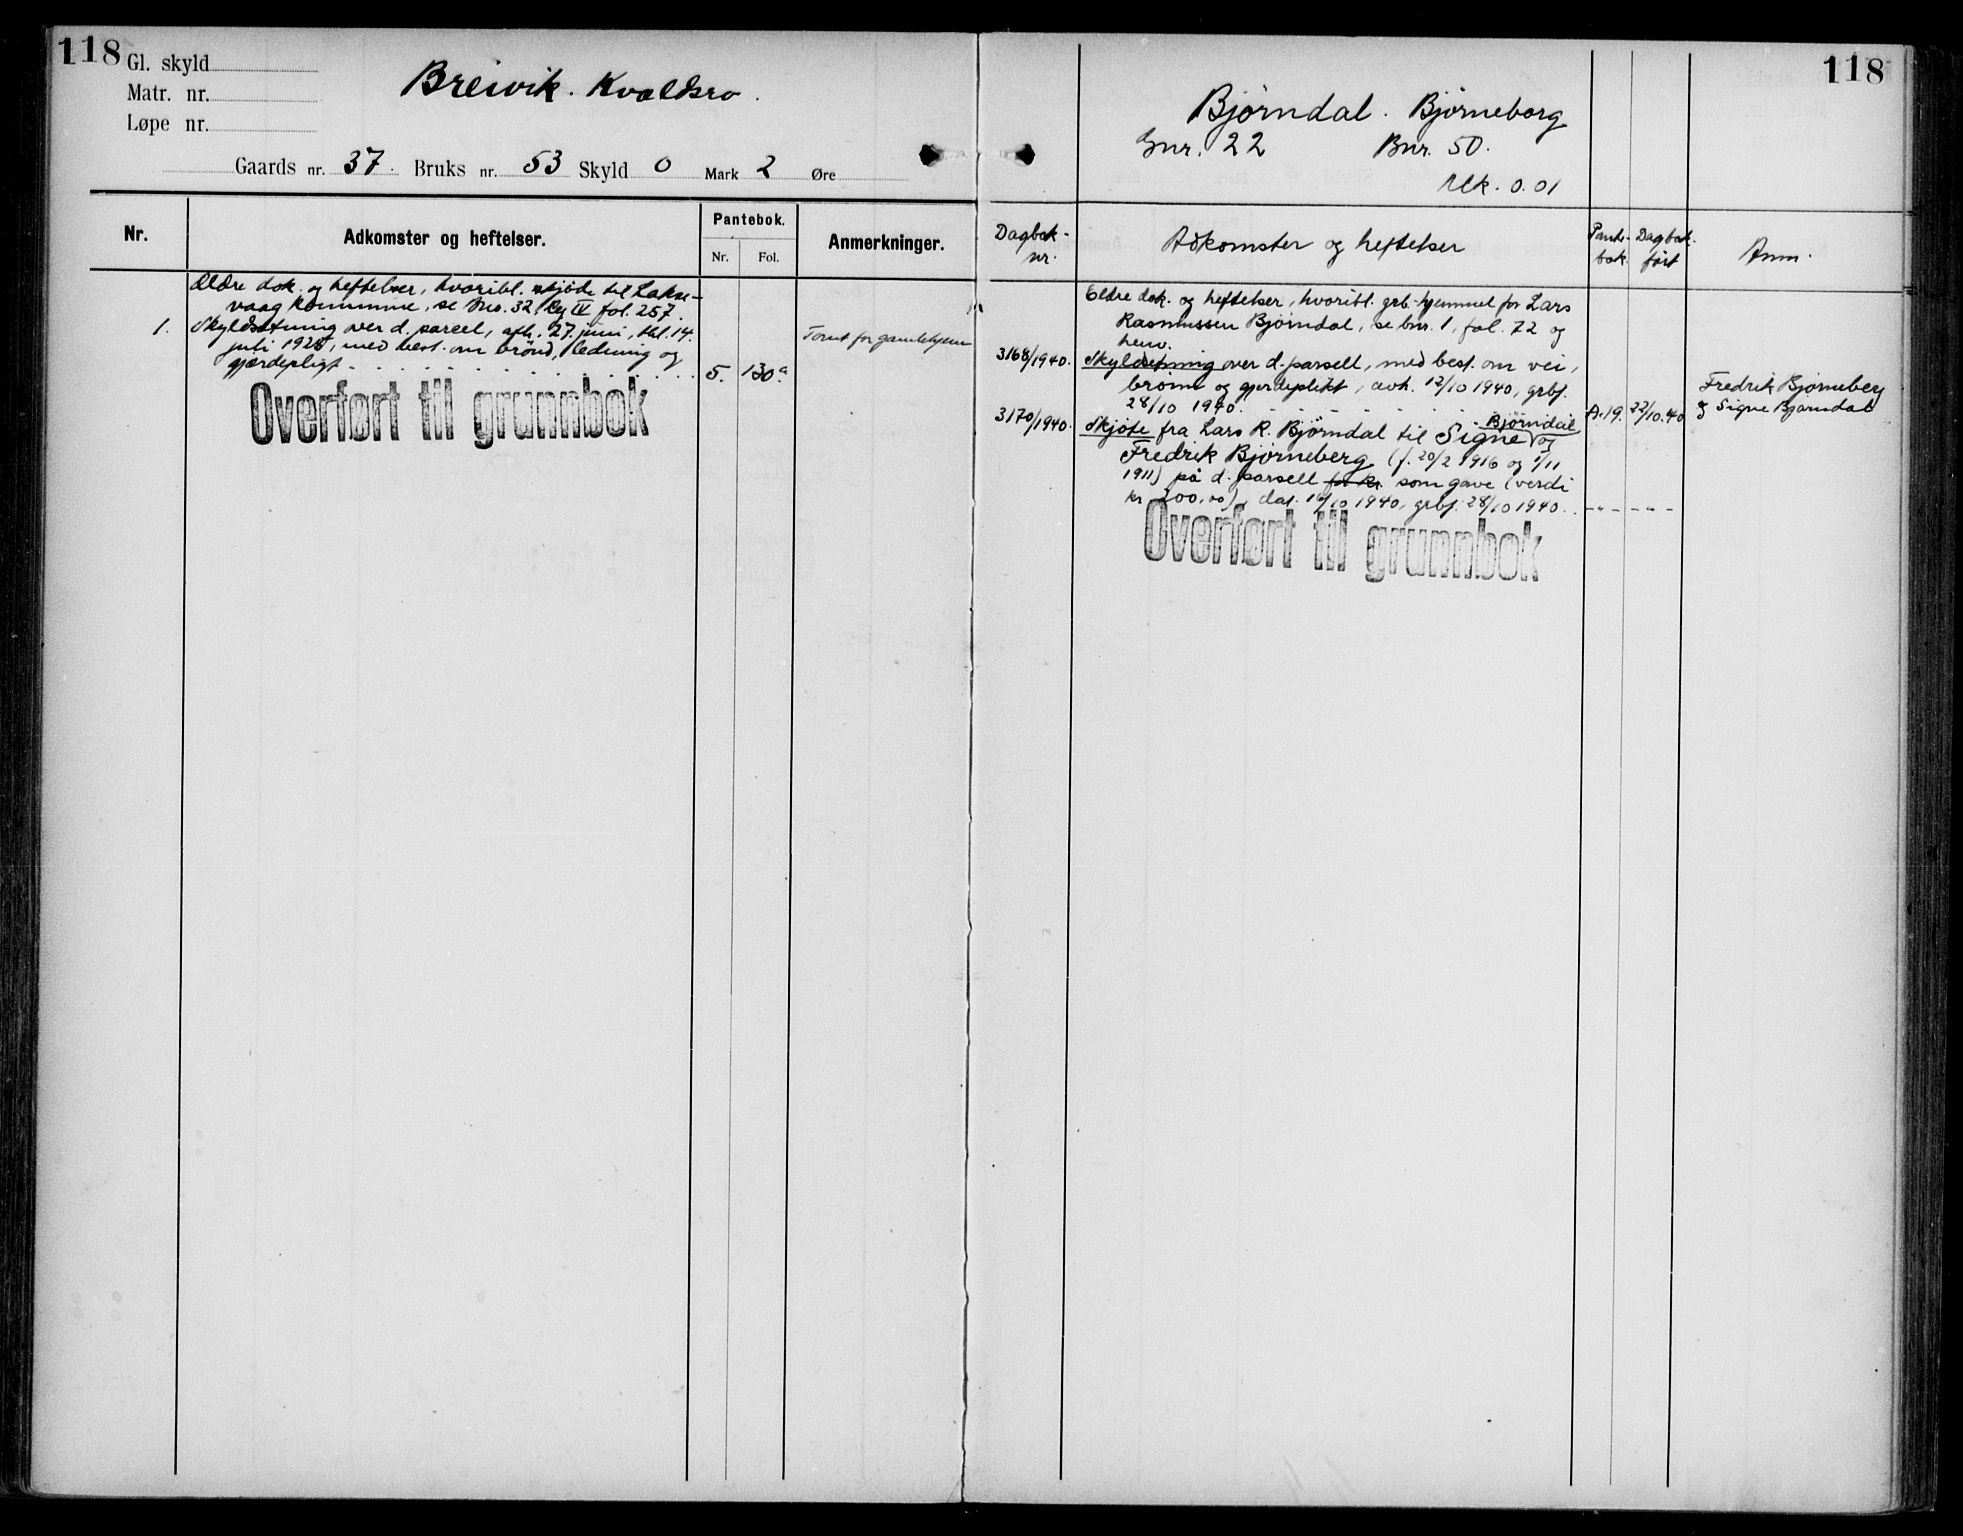 118
Gl. skyld
Matr. nr.
Løpe nr.
Breivik. Kvældsro.
Gaards nr. 37. Bruks nr. 53 Skyld 0 Mark 2 Øre
Nr.
Adkomster og heftelser.
Pantebok.
Nr. Fol.
Anmerkninger.
Ældre dok. og heftelser, hvoribl. skjøde til Lakse-
vaag kommune, se bno. 32 Reg IV fol. 257.
1. Skyldsetning over d. parcel, afh. 27. juni, thl. 14.
juli 1925, med best. om brønd, ledning og
gjærdepligt 5. 130a.
Tomt for gamlehjem
Overført til grunnbok
118
Bjørndal. Bjørneborg
Gnr. 22 Bnr. 50.
Mk. 0.01
Dagbok-
nr.
Adkomster og heftelser
Pante-
bok
Dagbok.
ført
Anm.
Eldre dok. og heftelser, hvoribl. grb.hjemmel for Lars
Rasmussen Bjørndal, se bnr. 1, fol. 72 og
henv.
3168/1940. Skyldsetning over d. parsell, med best. om vei,
brønn og gjerdeplikt, avh. 12/10 1940, grbf.
28/10 1940. A.19. 22/10.40
Fredrik Bjørneberg
og Signe Bjørndal
3170/1940. Skjøte fra Lars R. Bjørndal til Signe Bjørndal og
Fredrik Bjørneberg (f. 20/2 1916 og 1/11
1911) på d. parsell for kr. som gave (verdi
kr. 200,00), dat. 16/10 1940, grbf. 28/10 1940. -"- -"-
Overført til grunnbok